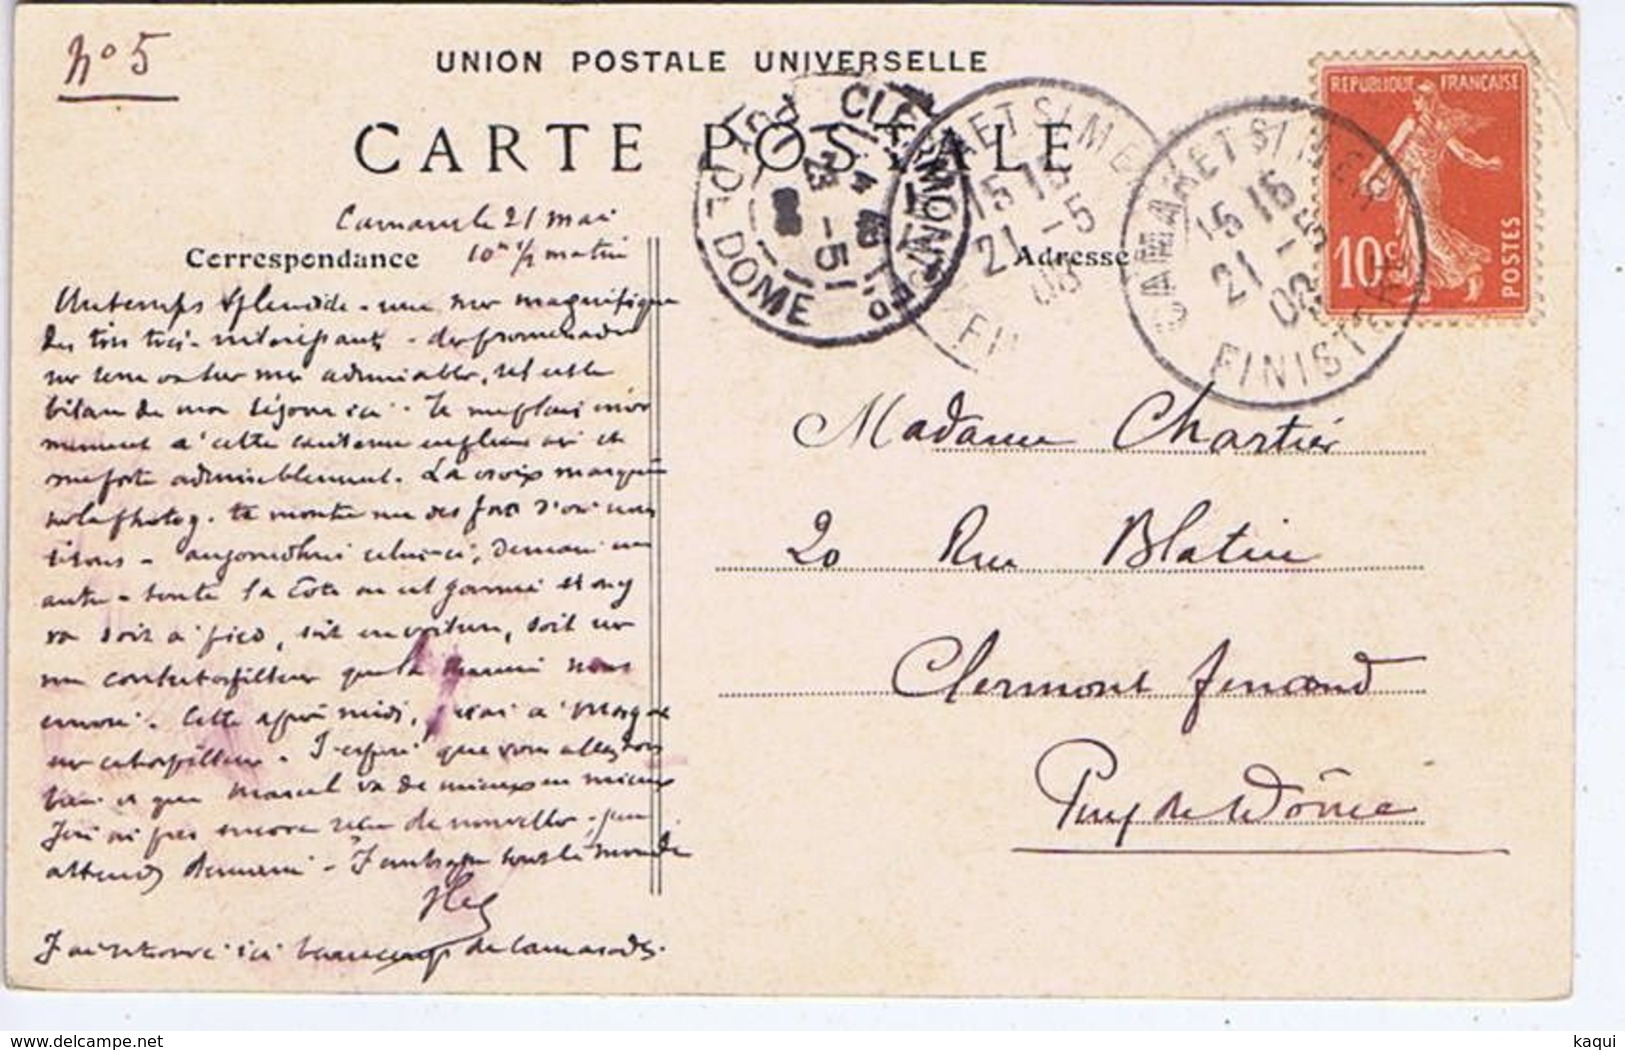 No 5
UNION POSTALE UNIVERSELLE
CARTE POSTALE
REPUBLIQUE FRANÇAISE
10c
POSTES
CLERMONT-FERRAND
PUY-DE-DOME
23 -5
CAMARET S/ MER
15 15
21 -5
08
FINISTERE
CAMARET S/ MER
15 15
21 -5
FINISTERE
21 mai
Correspondance
10h 1/2 matin
Adresse
Un temps splendide - une mer magnifique
des tirs très intéressants - des promenades
sur terre et sur mer admirables, tel est le
bilan de mon séjour ici. Je me plais énor
mément à cette vie en plein air et
me porte admirablement. La croix marquée
sur la photog. te montre un des forts d'où nous
tirons - aujourd'hui celui-ci, demain un
autre - toute la côte en est garnie et on y
va soit à pied, soit en voiture, soit sur
un contretorpilleur que la marine nous
envoie. Cette après midi, j'irai à Morgat
en contretorpilleur. J'espère que vous allez tous
bien et que Marcel va de mieux en mieux
Je n'ai pas encore reçu de nouvelles, j'en
attends demain - J'embrasse tout le monde
J'ai retrouvé ici beaucoup de camarades.
Madame Chartier
20 Rue Blatin
Clermont Ferrand
Puy de Dôme
kaqui